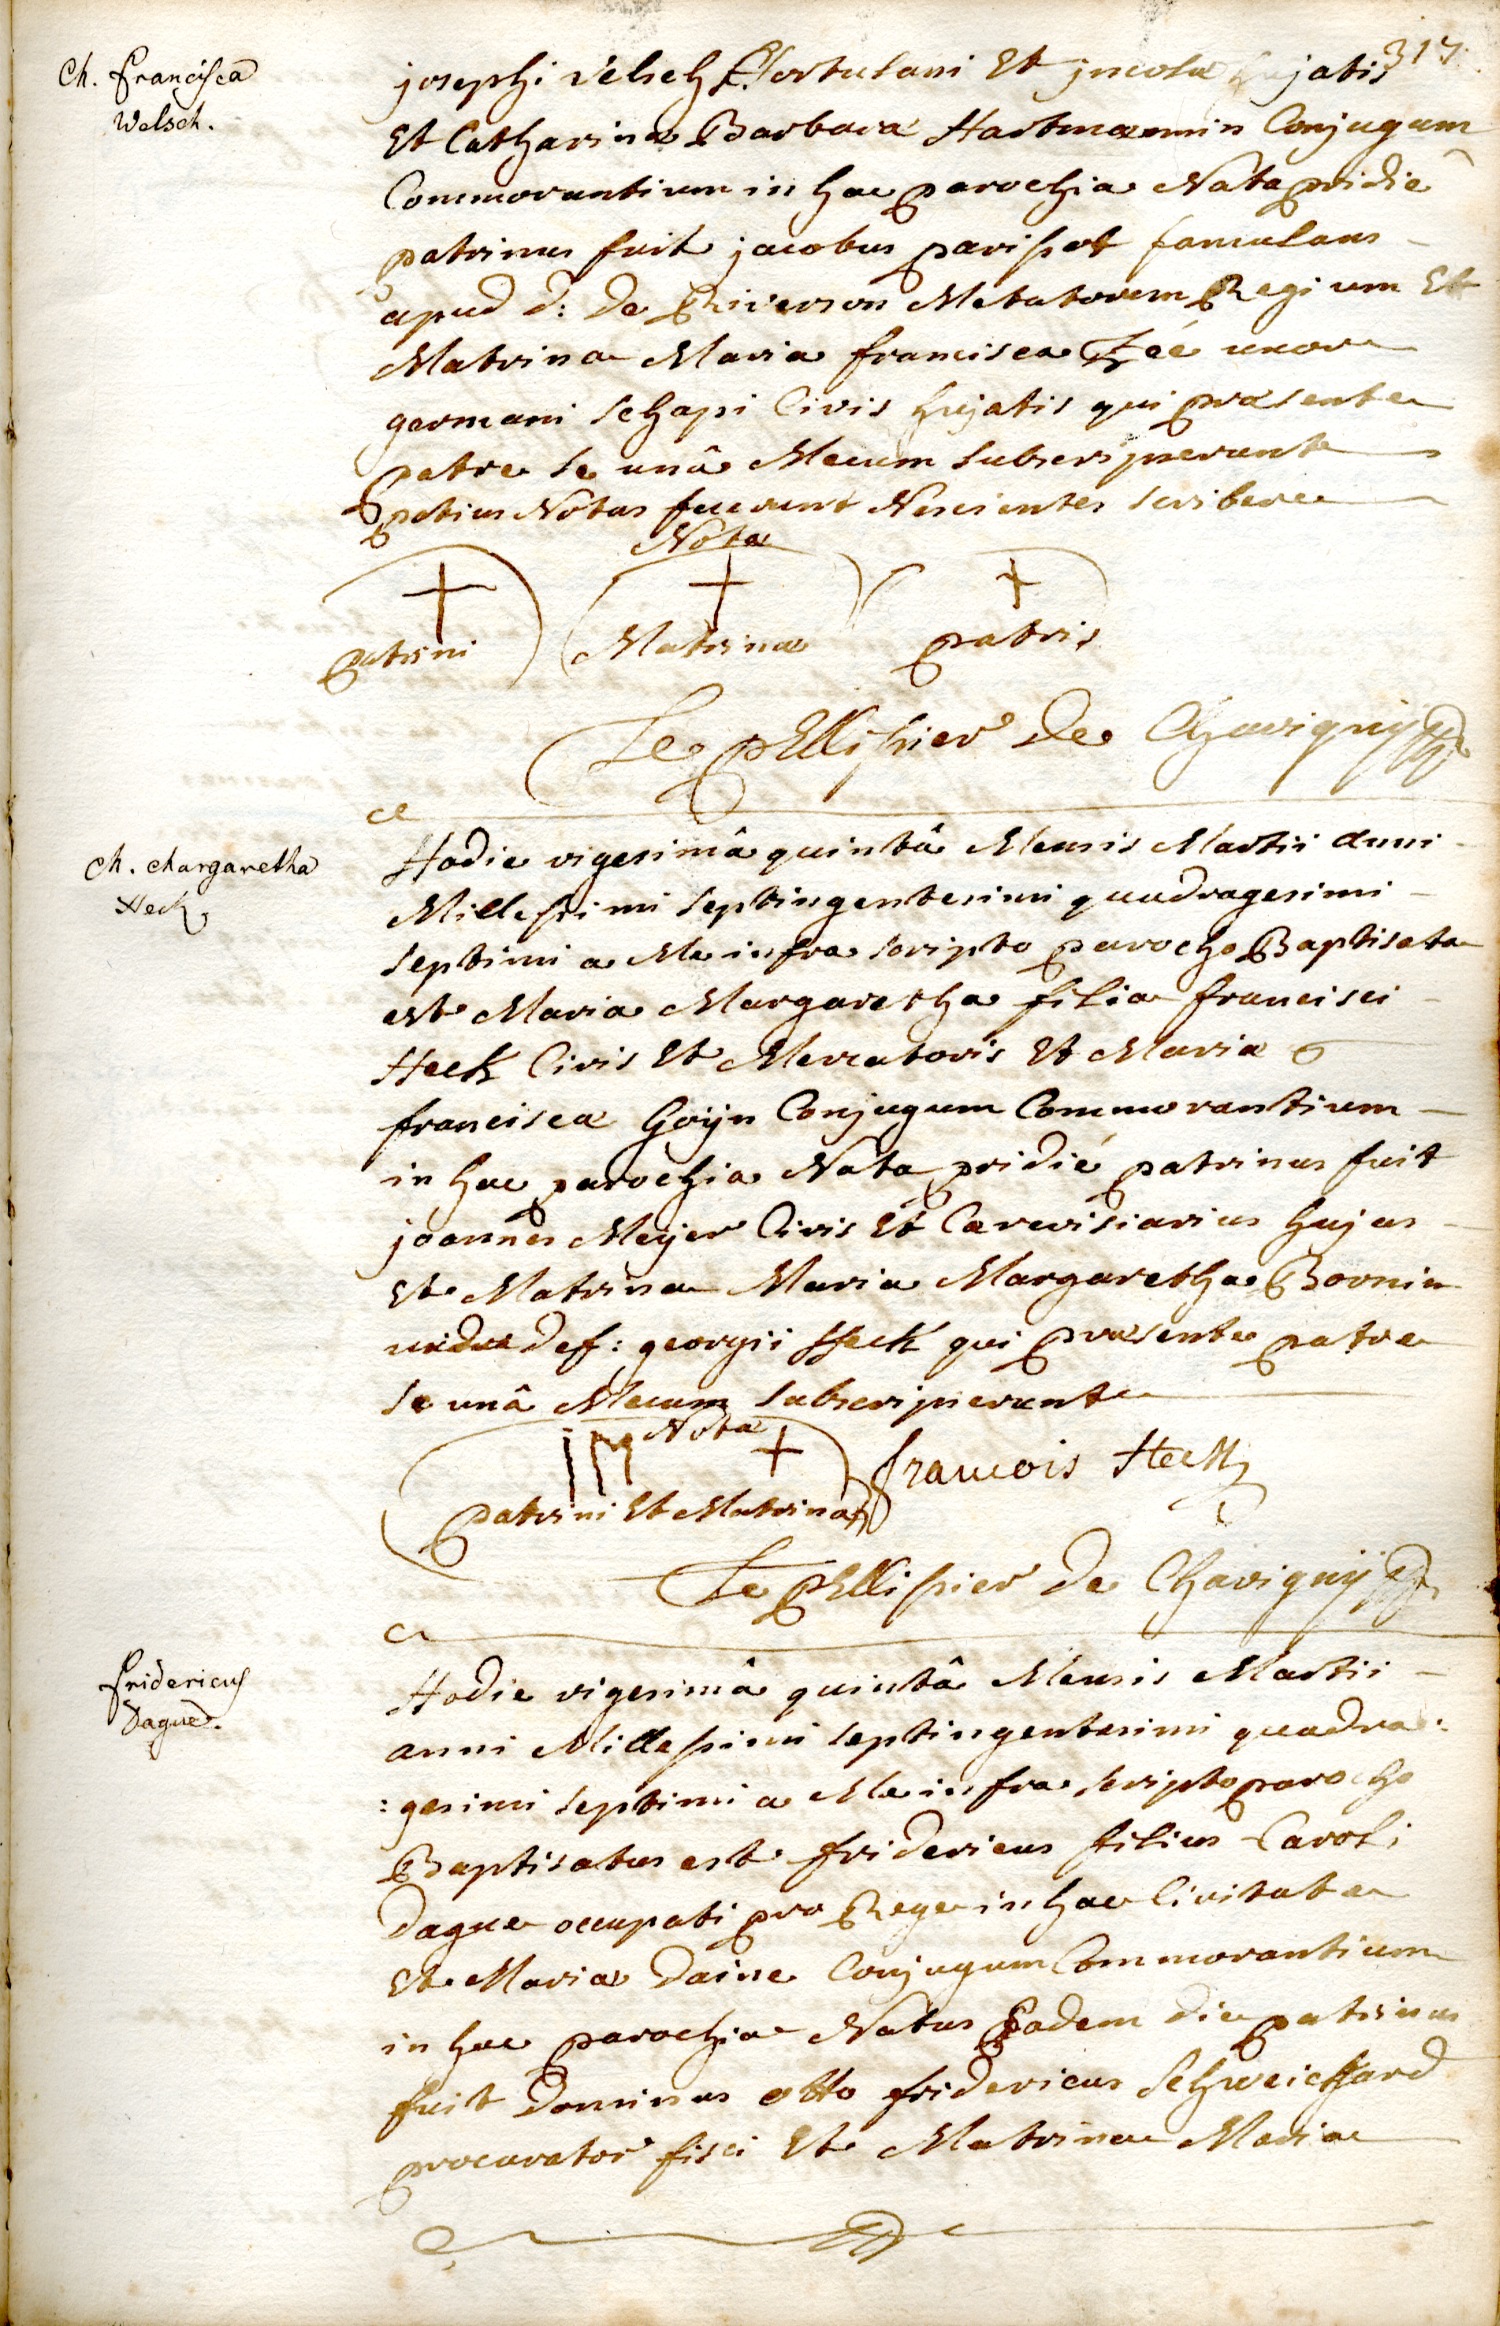 317.
M. Francisca
Welsch.
josephi Velsch Hortulani Et jncolæ hujatis
Et Catharinæ Barbaræ Hartmannin Conjugum
Commorantium in hac parochia Nata pridiè
patrinus fuit jacobus parisot famulans
apud d: de Riverson Metatorem Regium Et
Matrina Maria francisca Zéé uxor
germani schapi Civis hujatis qui præsente
patre se unâ Mecum subscripserunt
potius Notas fecerunt Nescientes scribere
Nota
patrini Matrinæ patris
Le pEllissier De Chavigny
M. Margaretha
Heck
Hodie vigesimâ quintâ Mensis Martii anni
Millessimi septingentesimi quadragesimi
septimi a Me infra scripto parocho Baptisata
est Maria Margaretha filia francisci
Heck Civis Et Mercatoris Et Mariæ
franciscæ Goÿn Conjugum Commorantium
in hac parochia Nata pridié patrinus fuit
joannes Meÿer Civis Et Cerevisiarius hujas
Et Matrina Maria Margaretha Bornin
vidua def: georgii Heck qui præsente patre
se unâ Mecum subscripserunt
Nota
IM
patrini Et Matrinæ
francois Heck
Le pEllissier de Chavignÿ
Fridericus
Dague.
Hodie vigesimâ quintâ Mensis Martii
anni Millessimi septingentesimi quadra:
:gesimi septimi a Me infra scripto parocho
Baptisatus est fridericus filius Caroli
Dague occupati pro Rege in hac Civitate
Et Mariæ Daine Conjugum Commorantium
in hac parochia Natus Eadem die patrinus
fuit Dominus otto fridericus Schweickhard
procurator fisci Et Matrina Maria